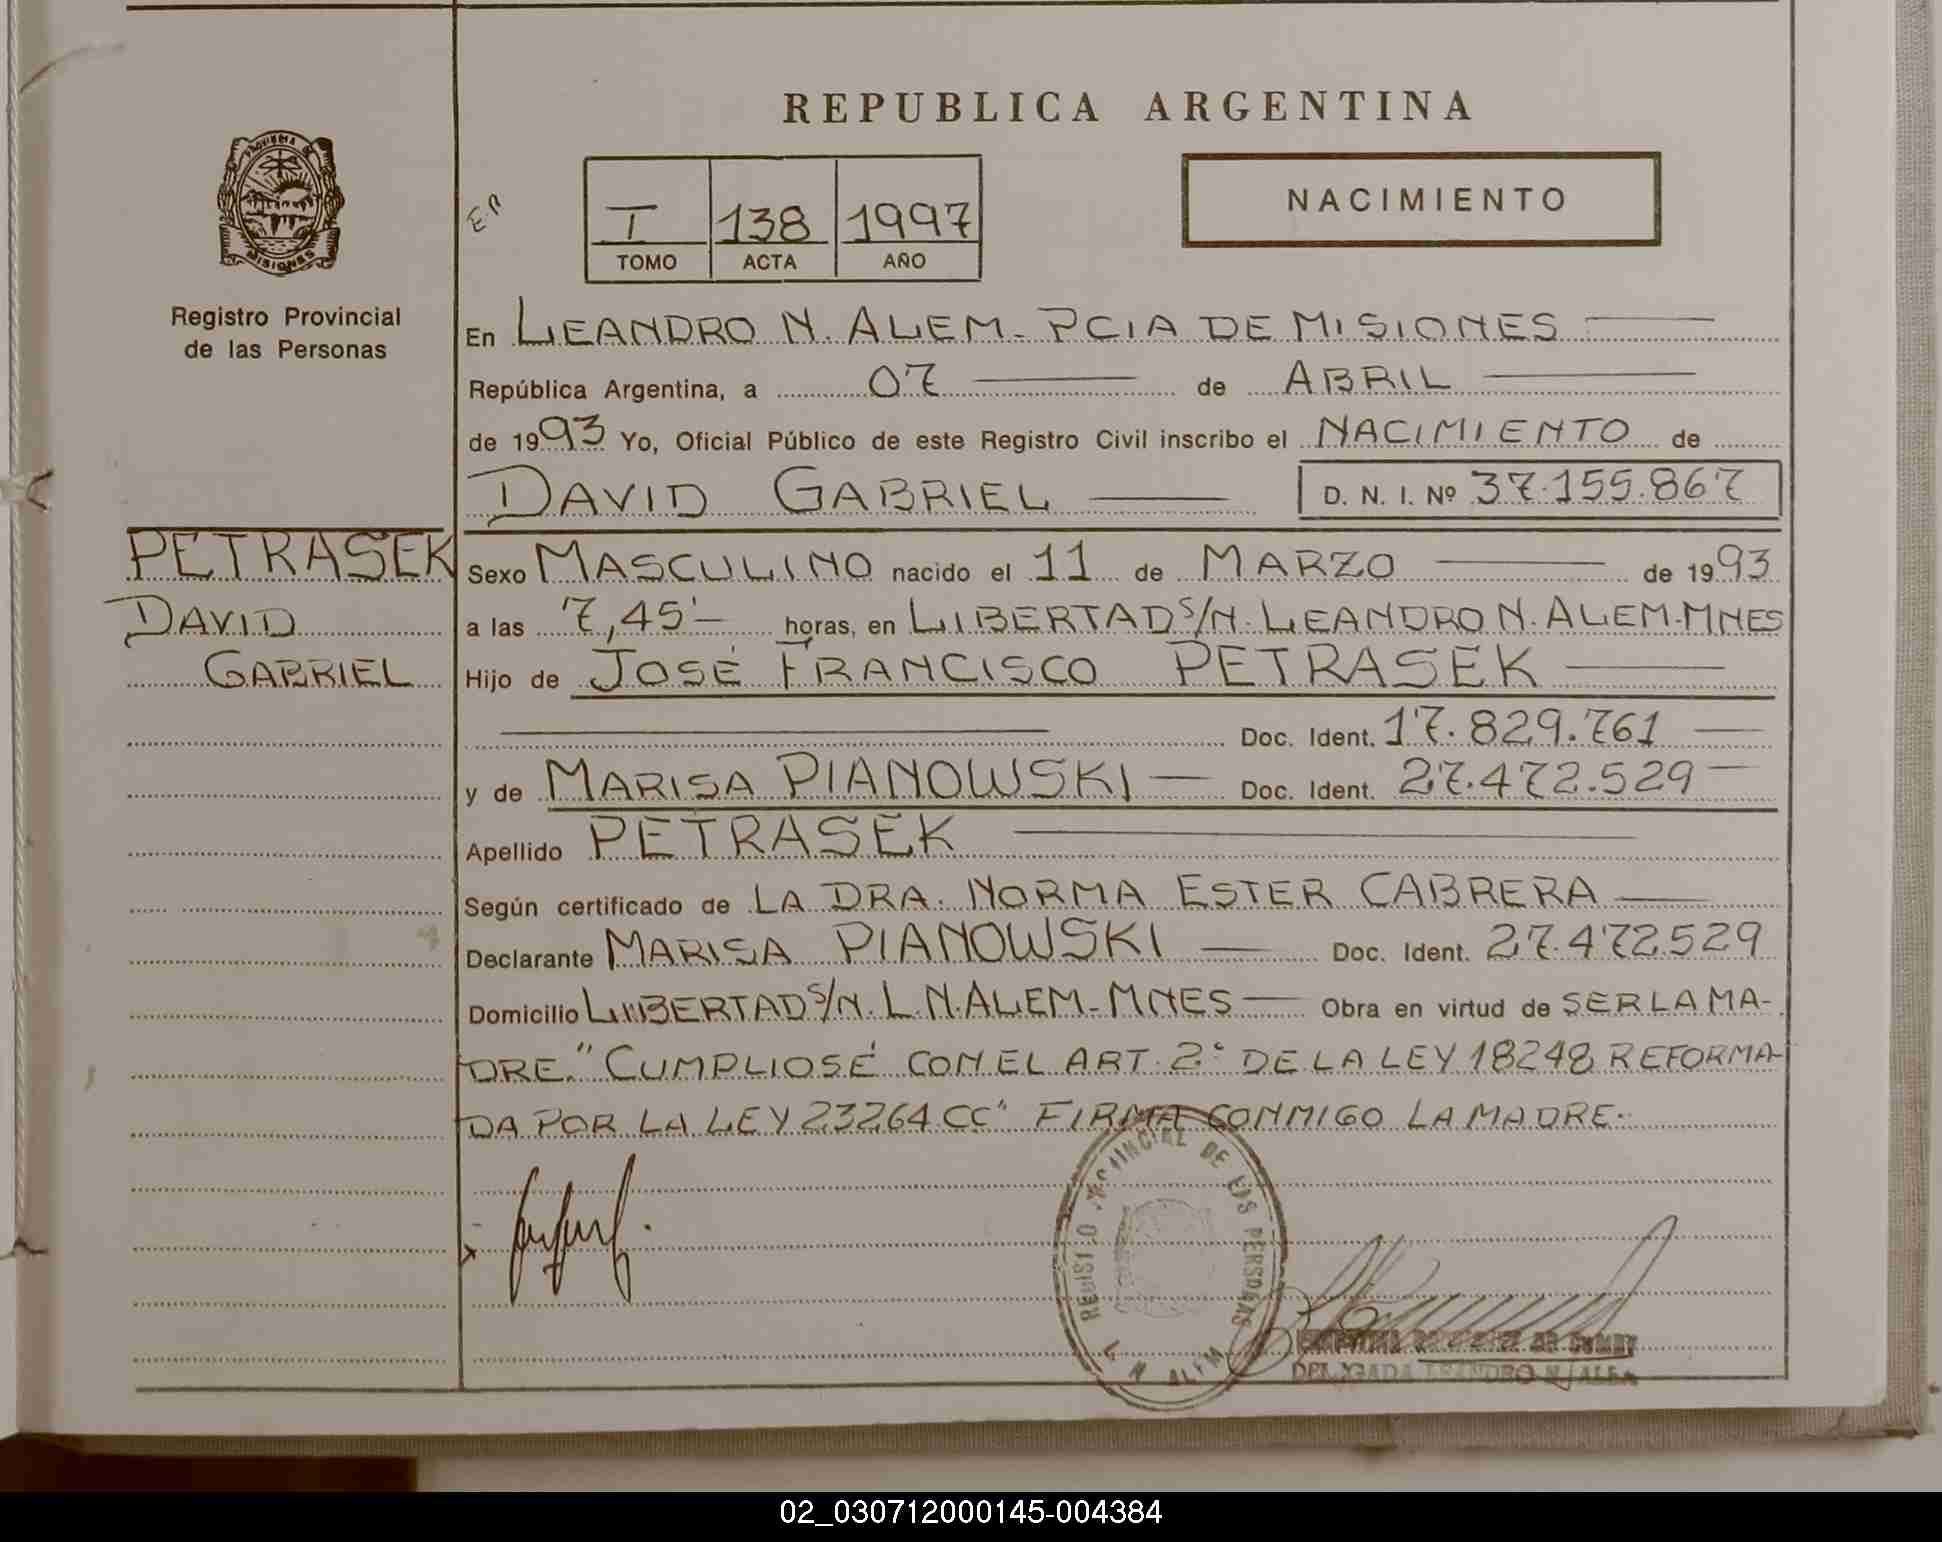 REPUBLICA ARGENTINA
PROVINCIA DE
MISIONES
Registro Provincial
de las Personas
I 138 1997
TOMO ACTA AÑO
NACIMIENTO
En LEANDRO N. ALEM - PCIA DE MISIONES
República Argentina, a 07 de ABRIL
de 1993 Yo, Oficial Público de este Registro Civil inscribo el NACIMIENTO de
DAVID GABRIEL D. N. I. Nº 37.155.867
PETRASEK
DAVID
GABRIEL
Sexo MASCULINO nacido el 11 de MARZO de 1993
a las 7,45'- horas, en LIBERTAD S/N. LEANDRO N. ALEM-MNES
Hijo de JOSÉ FRANCISCO PETRASEK
Doc. Ident. 17.829.761
y de MARISA PIANOWSKI Doc. Ident. 27.472.529
Apellido PETRASEK
Según certificado de LA DRA. NORMA ESTER CABRERA
Declarante MARISA PIANOWSKI Doc. Ident. 27.472.529
Domicilio LIBERTAD S/N. L.N.ALEM-MNES Obra en virtud de SER LA MA-
DRE. "CUMPLIOSÉ CON EL ART. 2° DE LA LEY 18248 REFORMA-
DA POR LA LEY 23264 CC" FIRMA CONMIGO LA MADRE.
REGISTRO PROVINCIAL DE LAS PERSONAS
L. N. ALEM
DELEGADA LEANDRO N. ALEM
02_030712000145-004384